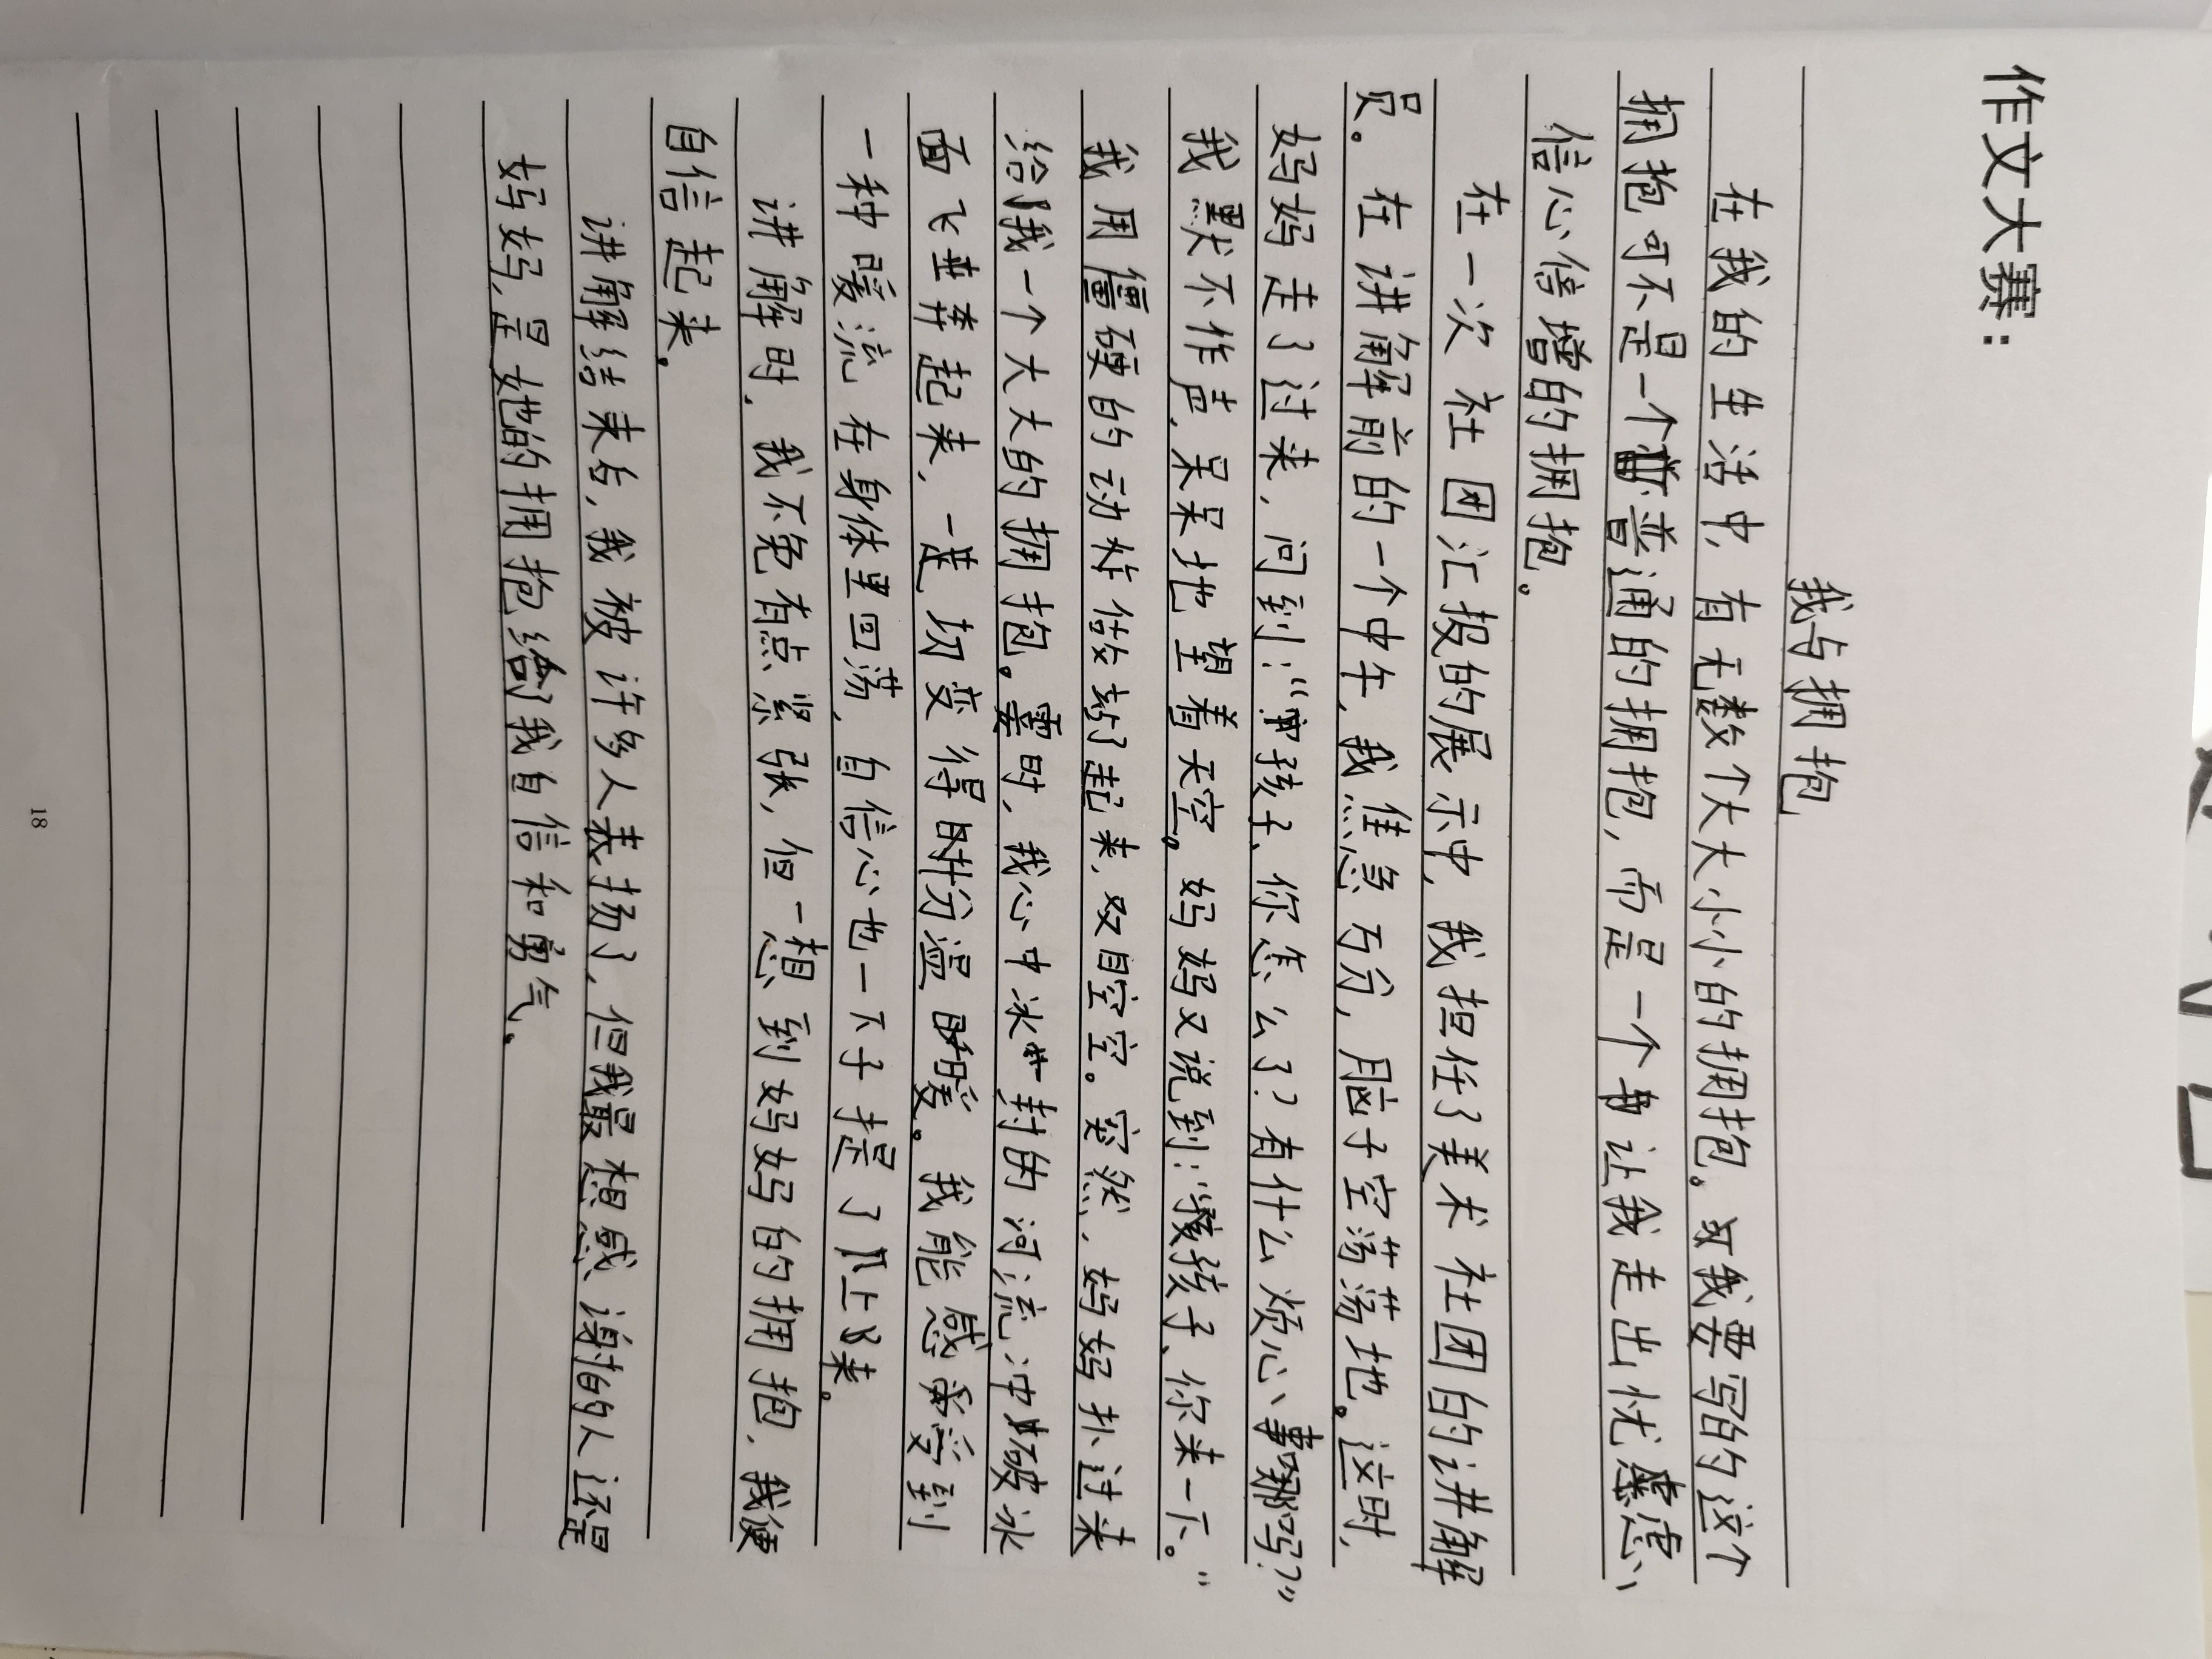 作文大赛：
我与拥抱
在我的生活中，有无数个大大小小的拥抱。我要写的这个
拥抱可不是一个普通的拥抱，而是一个让我走出忧虑、
信心倍增的拥抱。
在一次社团汇报的展示中，我担任了美术社团的讲解
员。在讲解前的一个中午，我焦急万分，脑子空荡荡地。这时，
妈妈走了过来，问到：“孩子、你怎么了？有什么烦心事吗？”
我默不作声，呆呆地望着天空。妈妈又说到：“孩子、你来一下。”
我用僵硬的动作站了起来，双目空空。突然，妈妈扑过来
给了我一个大大的拥抱。霎时，我心中冰封的河流冲破冰
面飞奔起来，一切变得十分温暖。我能感受到
一种暖流在身体里回荡，自信心也一下子提了上来。
讲解时，我不免有点紧张，但一想到妈妈的拥抱，我便
自信起来。
讲解结束后，我被许多人表扬了，但我最想感谢的人还是
妈妈，是她的拥抱给了我自信和勇气。
18